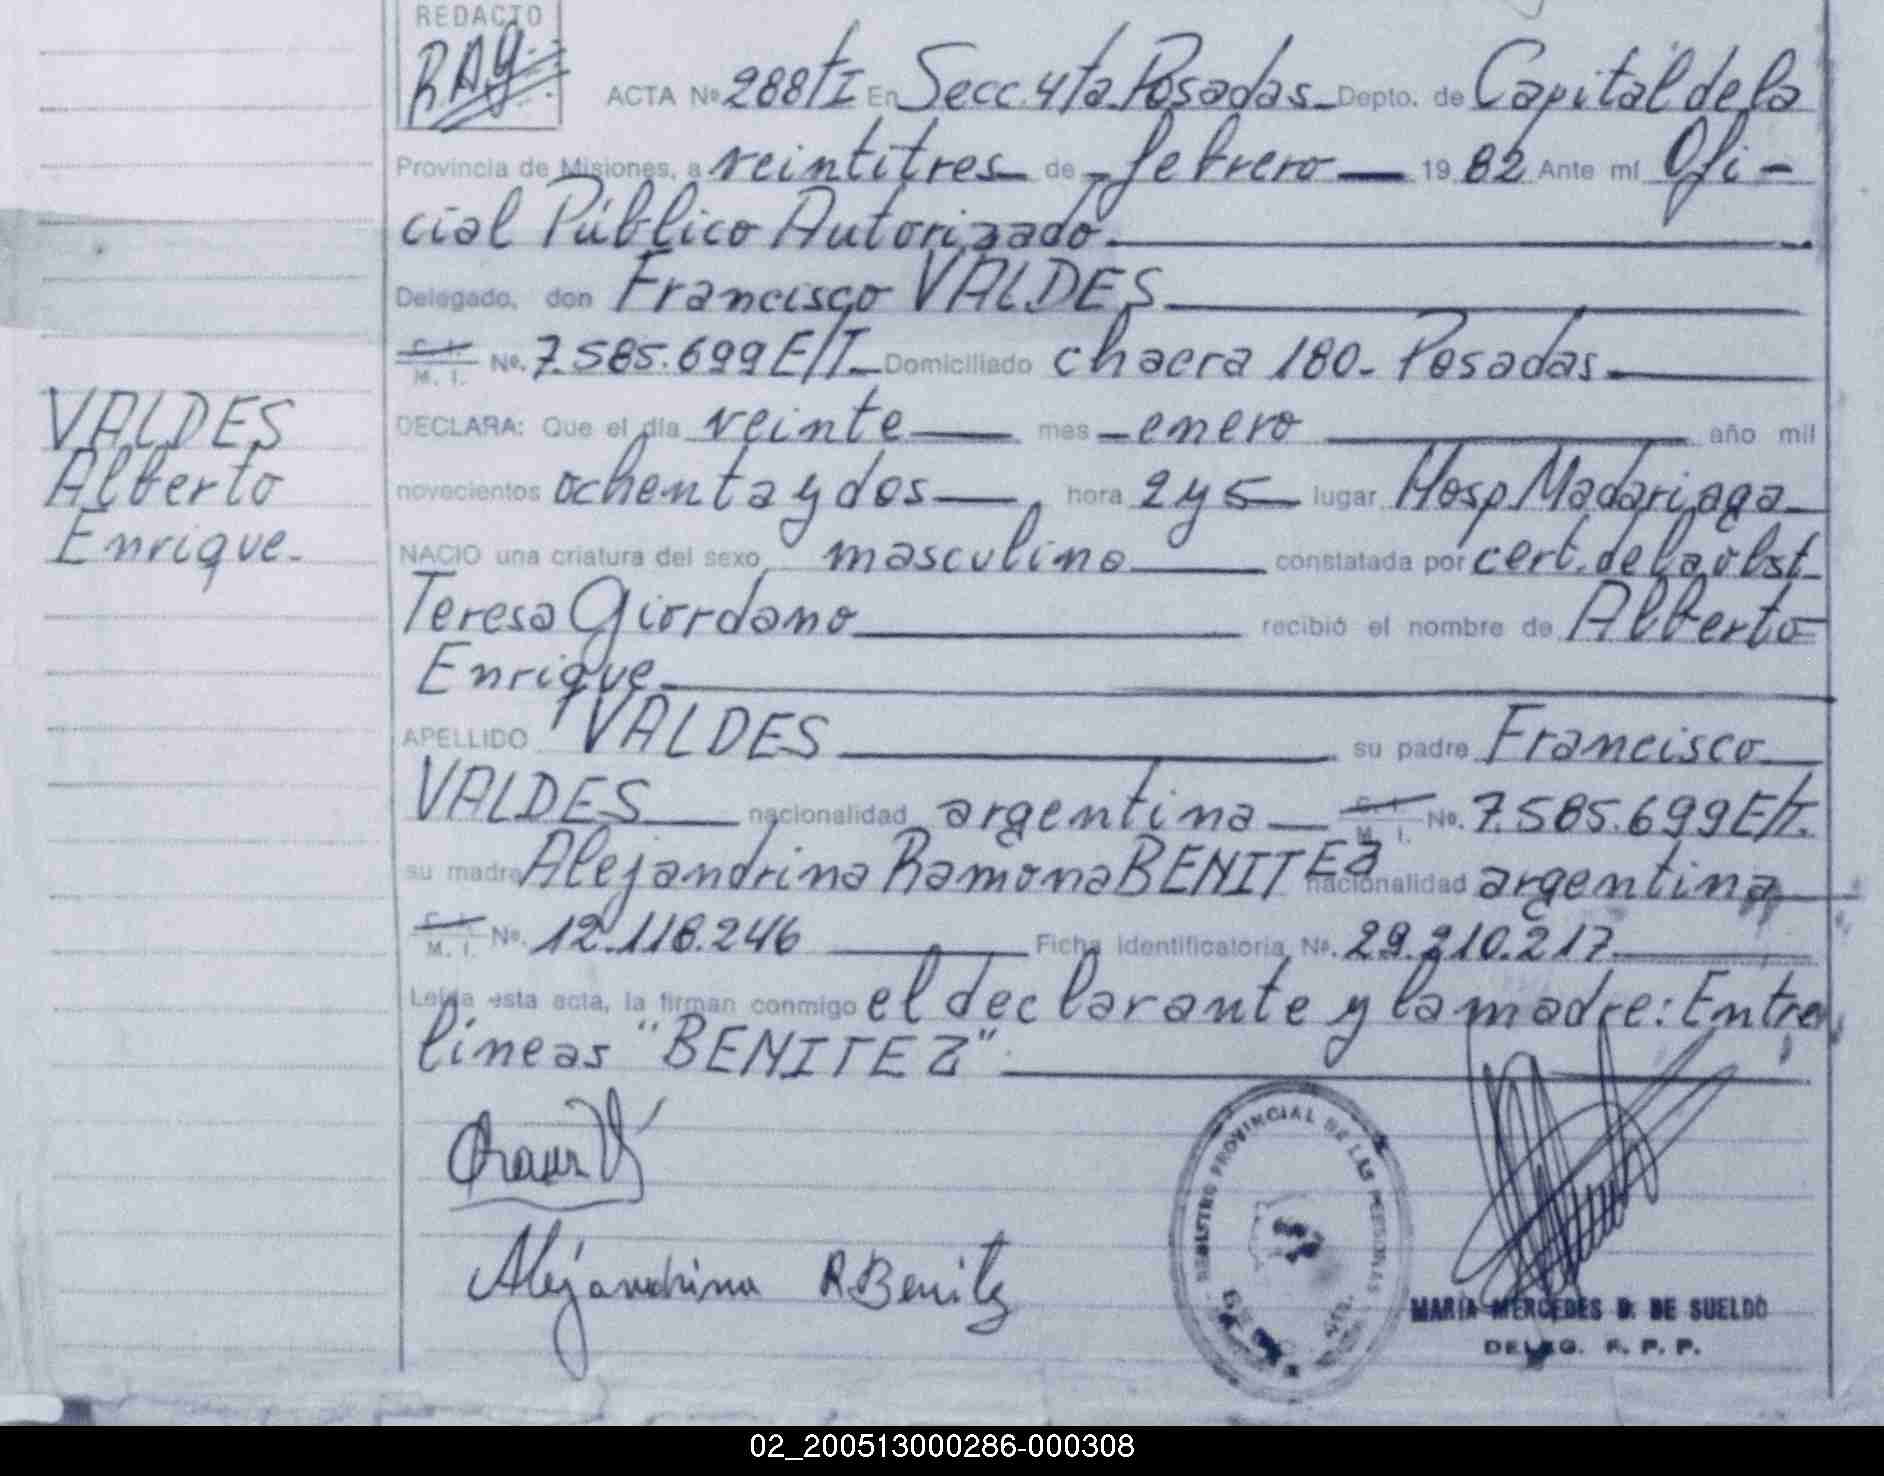 REDACTO
RAG
ACTA Nº 288/TI En Secc. 4ta Posadas Depto. de Capital de la
Provincia de Misiones, a veintitres de febrero 1982 Ante mí Ofi-
cial Público Autorizado.
Delegado, don Francisco VALDES
C. I. M. I. Nº. 7.585.699 E/T Domiciliado chacra 180- Posadas
DECLARA: Que el día veinte mes enero año mil
VALDES
Alberto
Enrique.
novecientos ochenta y dos hora 2 y 5 lugar Hosp Madariaga
NACIO una criatura del sexo masculino constatada por cert. de la obst.
Teresa Giordano recibió el nombre de Alberto
Enrique
APELLIDO VALDES su padre Francisco
VALDES nacionalidad argentina C. I. M. I. Nº. 7.585.699 E/T.
su madre Alejandrina Ramona BENITEZ nacionalidad argentina
C. I. M. I. Nº. 12.118.246 Ficha identificatoria Nº. 29.210.217
Leída esta acta, la firman conmigo el declarante y la madre: Entre
líneas "BENITEZ"
Alejandrina R Benitez
REGISTRO PROVINCIAL DE LAS PERSONAS
MARIA MERCEDES D. DE SUELDO
DELEG. R. P. P.
02_200513000286-000308